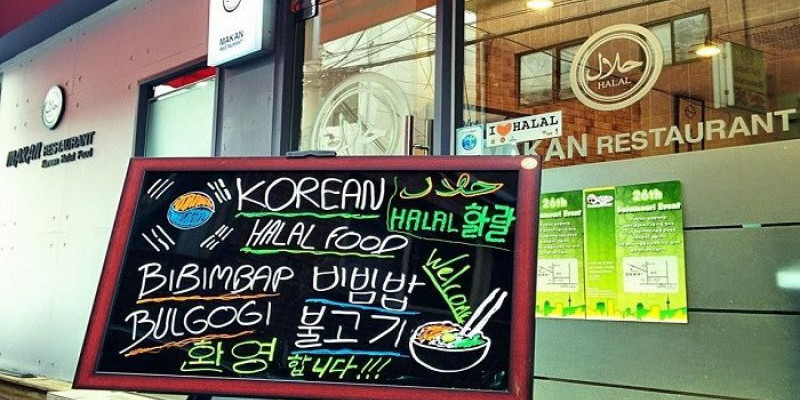 MAKAN
RESTAURANT
حلال
HALAL
MAKAN RESTAURANT
Korean Halal Food
I ❤ HALAL
MAKAN RESTAURANT
26th
26th
KOREAN
حلال
HALAL 할랄
HALAL FOOD
BIBIMBAP 비빔밥
Welcome
BULGOGI 불고기
환영합니다!!!